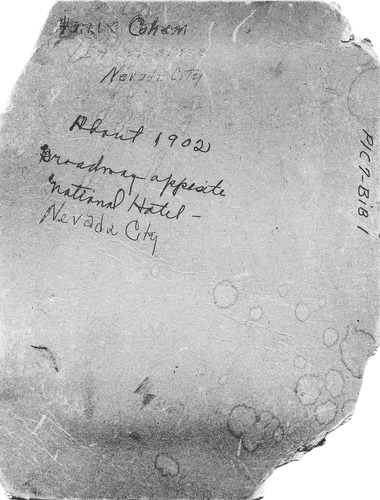 Cohen
Nevada City
About 1902
Broadway opposite
National Hotel -
Nevada City
PIC7-B181